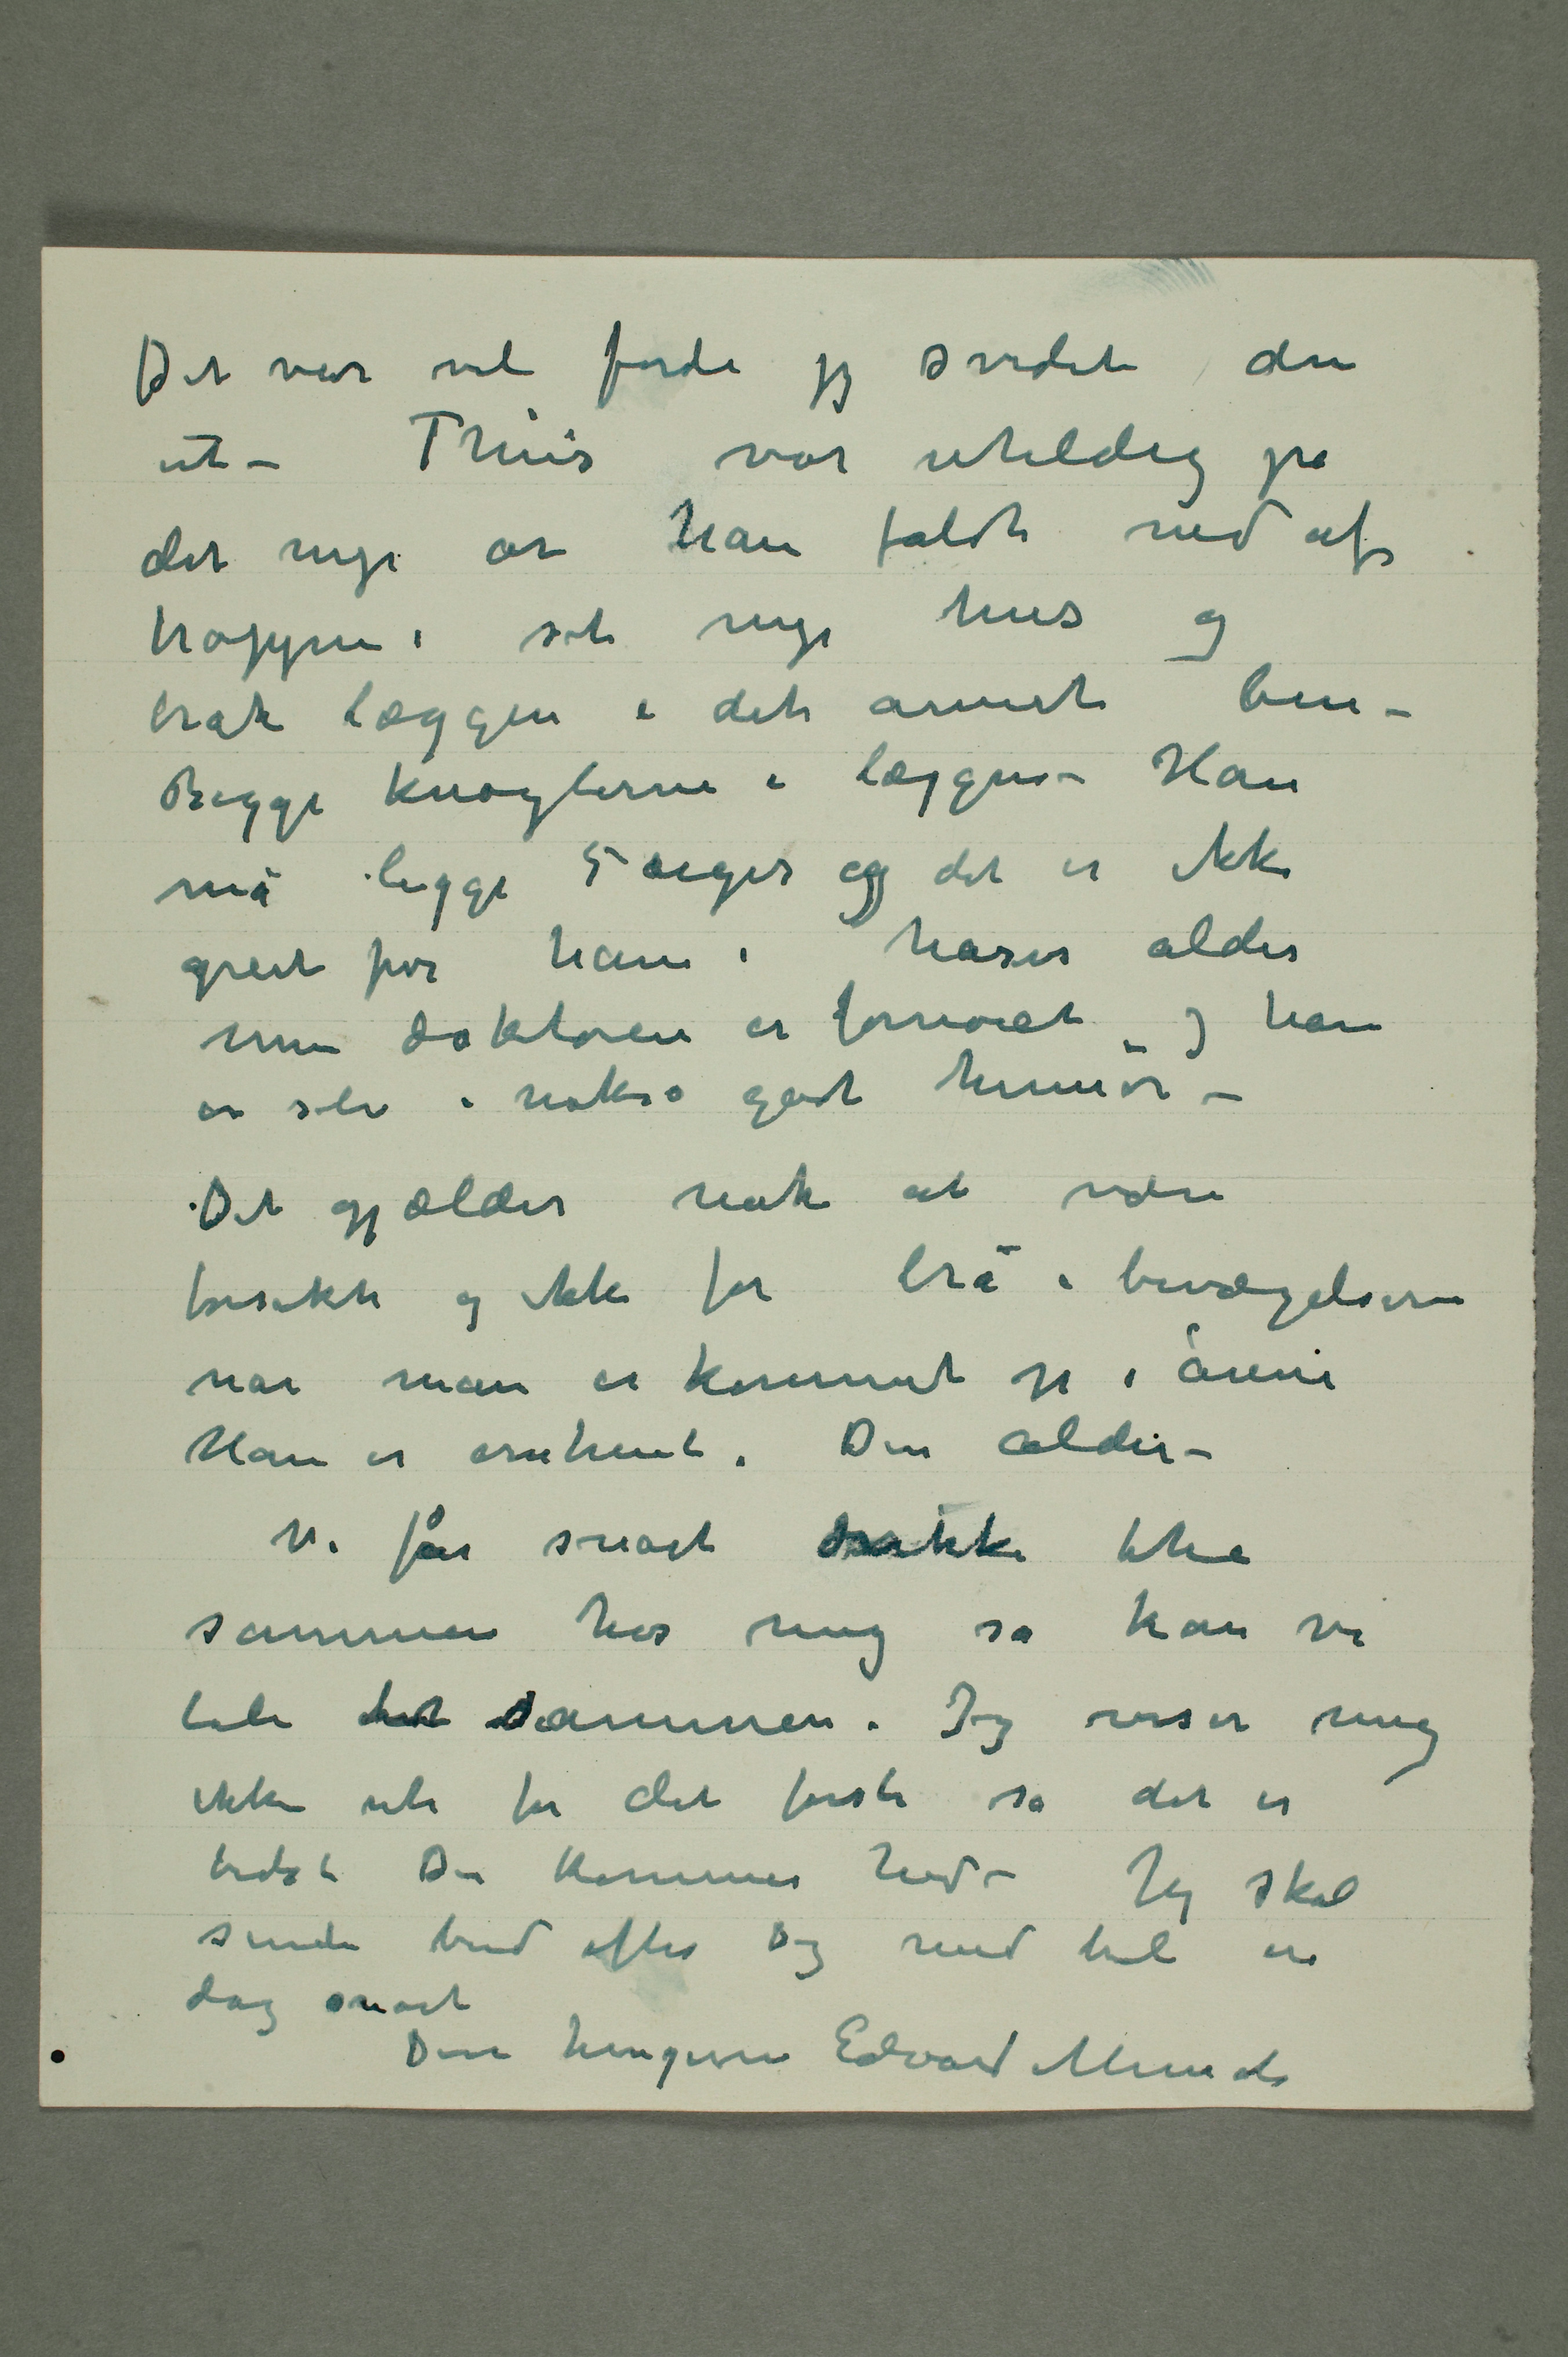 Det var vel fordi jeg svedet den
ut – Thiis var uheldig på
det nye år Han faldt ned af
trappen i sit nye hus og
brak læggen i det armeste ben –
Begge knoglerne i læggen – Han
må ligge 5 uger og det er ikke
greit for ham i hans alder
men doktoren er fornøiet og han
er selv i nokså godt humør –
Det gjælder nok at være
forsikti og ikke for brå i bevægelserne
når man er kommet op i årene
Han er omtrent i Din alder –
Vi får snart drikke the
sammen hos mig så kan vi
tale sammen. Jeg viser mig
ikke ute for det første så det er
bedst Du kommer hid – Jeg skal
sende bud efter Dig med bil en
dag snart
Din hengivne Edvard Munch